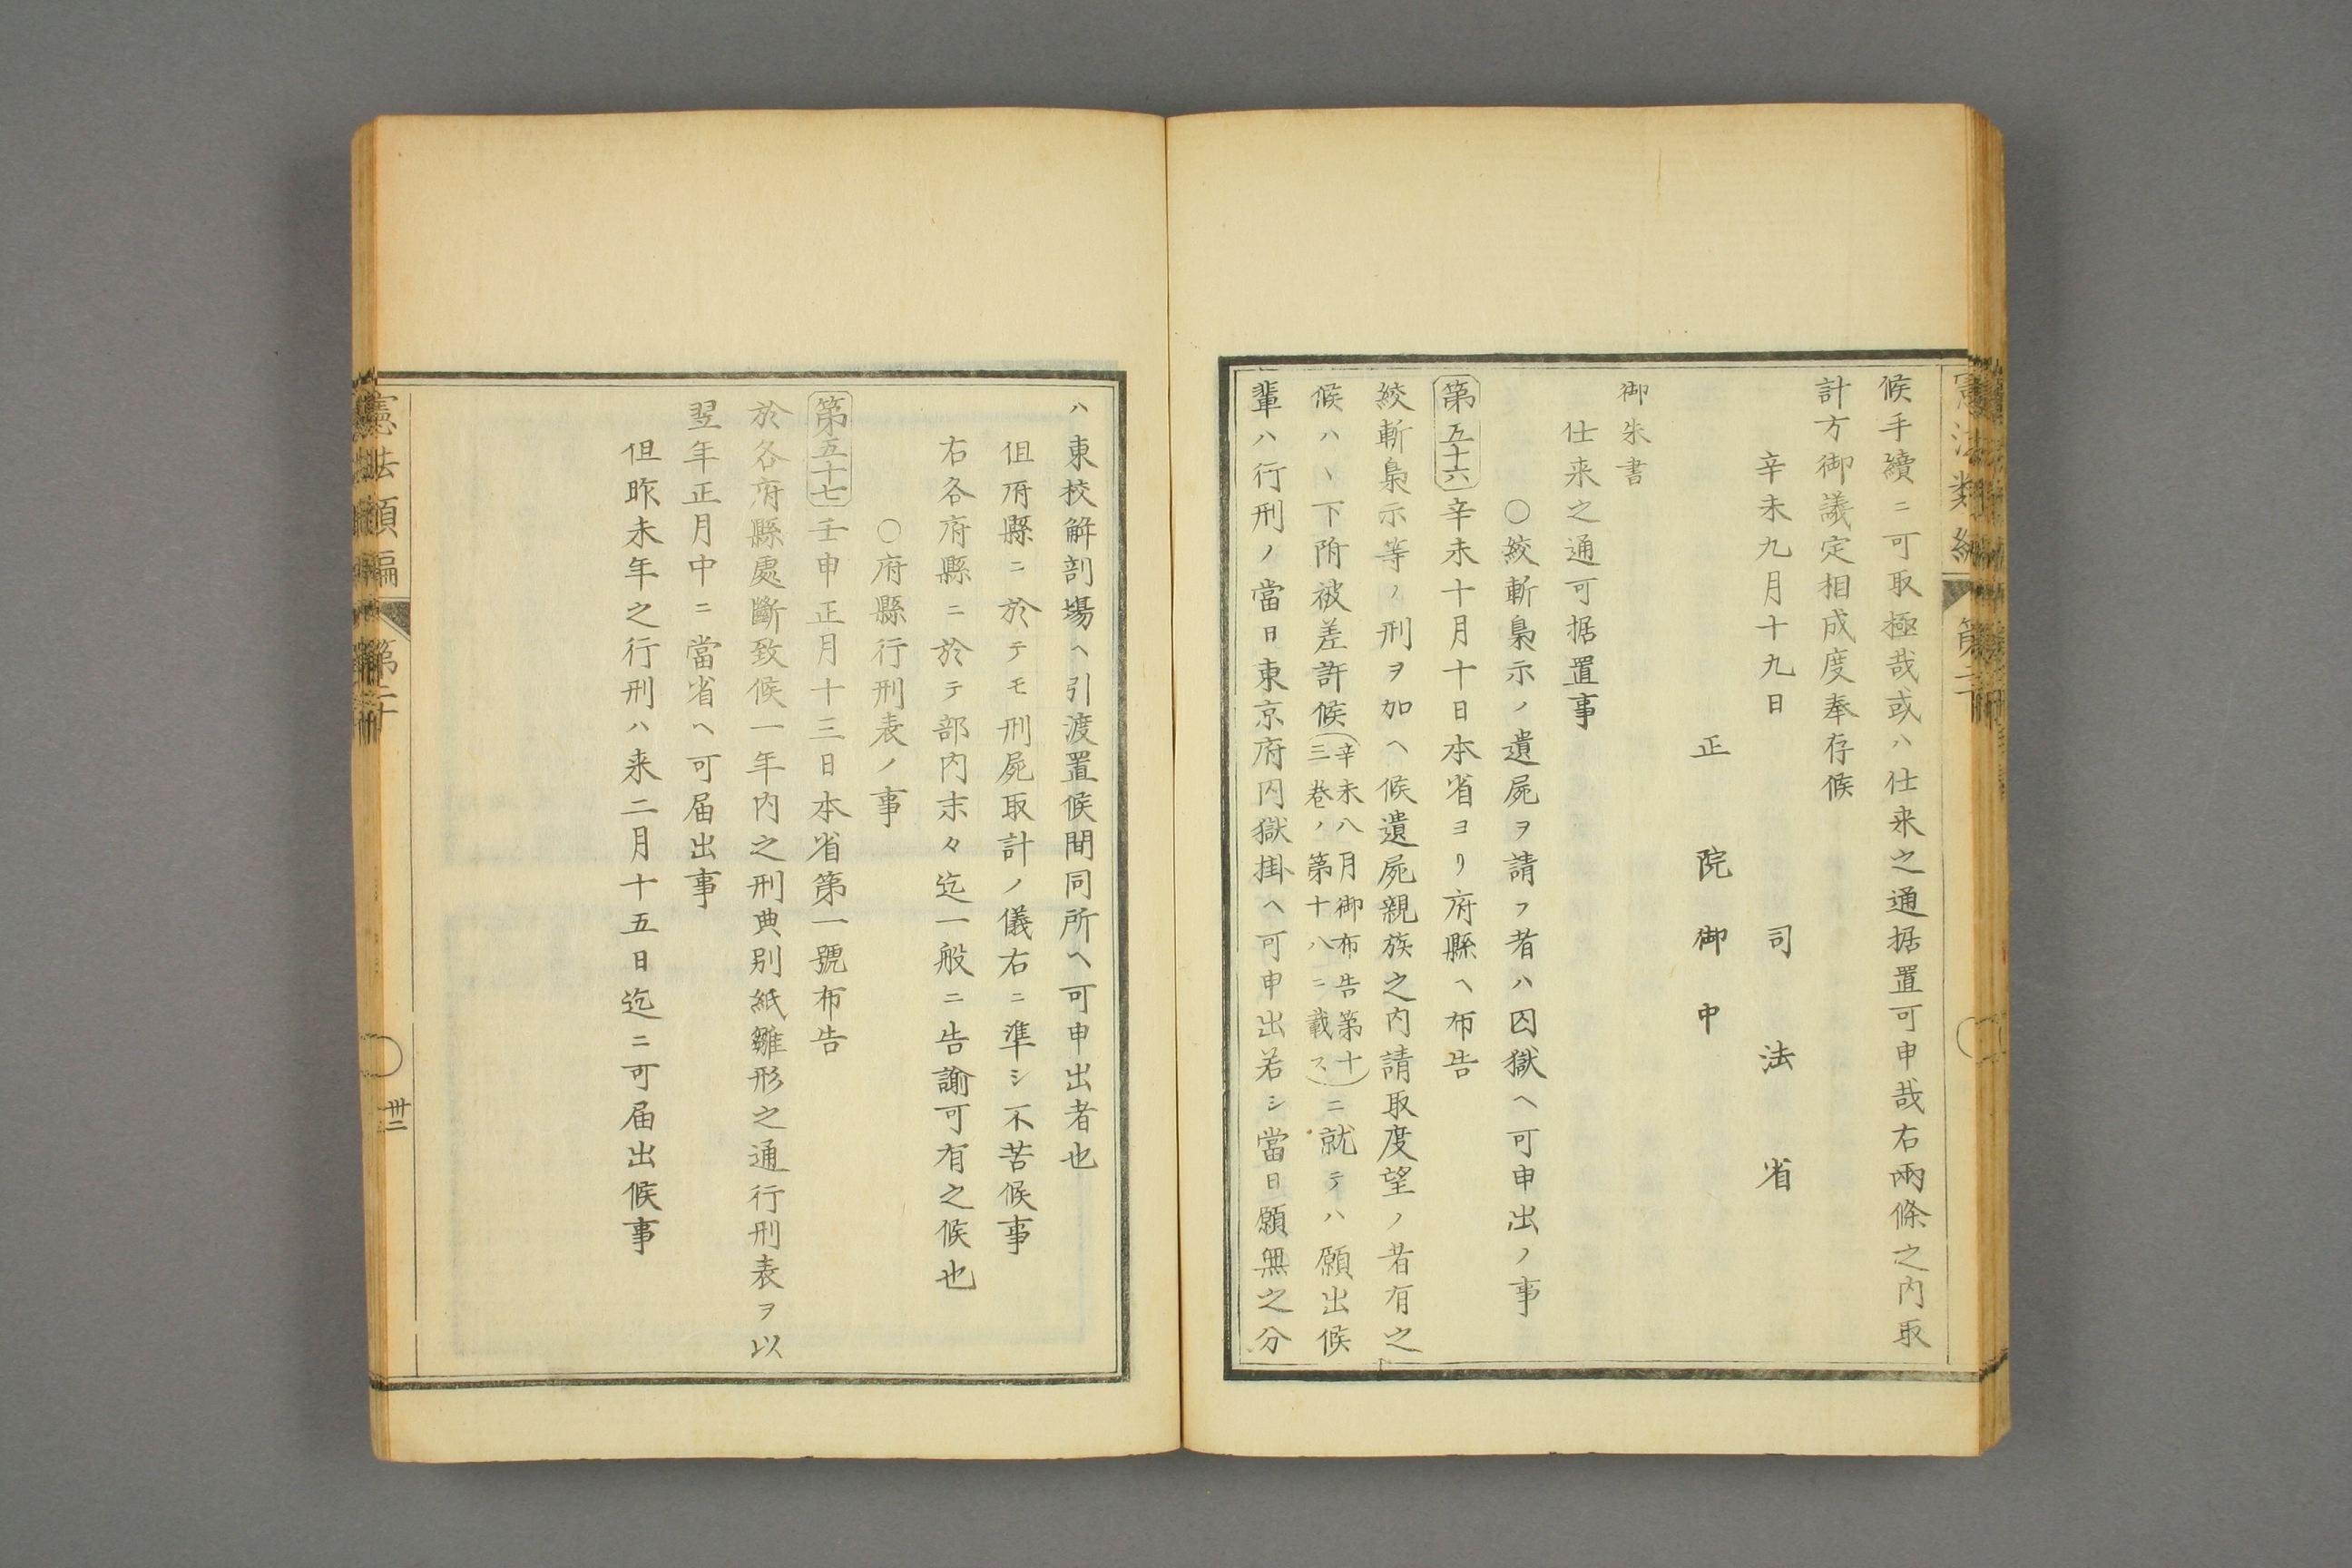 候手續ニ可取極哉或ハ仕来之通据置可申哉右兩條之内取
計方御議定相成度奉存候
辛未九月十九日
司法省
正院御中
御朱書
仕来之通可据置事
○絞斬梟示ノ遺屍ヲ請フ者ハ囚獄ヘ可申出ノ事
第五十六 辛未十月十日本省ヨリ府縣ヘ布告
絞斬梟示等ノ刑ヲ加ヘ候遺屍親族之内請取度望ノ者有之
候ハヽ下附被差許候(辛未八月御布告第十三巻ノ第十八ニ載ス)ニ就テハ願出候
輩ハ行刑ノ當日東京府囚獄掛ヘ可申出若シ當日願無之分
ハ東校解剖場ヘ引渡置候間同所ヘ可申出者也
但府縣ニ於テモ刑屍取計ノ儀右ニ準シ不苦候事
右各府縣ニ於テ部内末々迄一般ニ告諭可有之候也
○府縣行刑表ノ事
第五十七 壬申正月十三日本省第一號布告
於各府縣處斷致候一年内之刑典別紙雛形之通行刑表ヲ以
翌年正月中ニ當省ヘ可届出事
但昨未年之行刑ハ来二月十五日迄ニ可届出候事
憲法類編 第二十
卅二